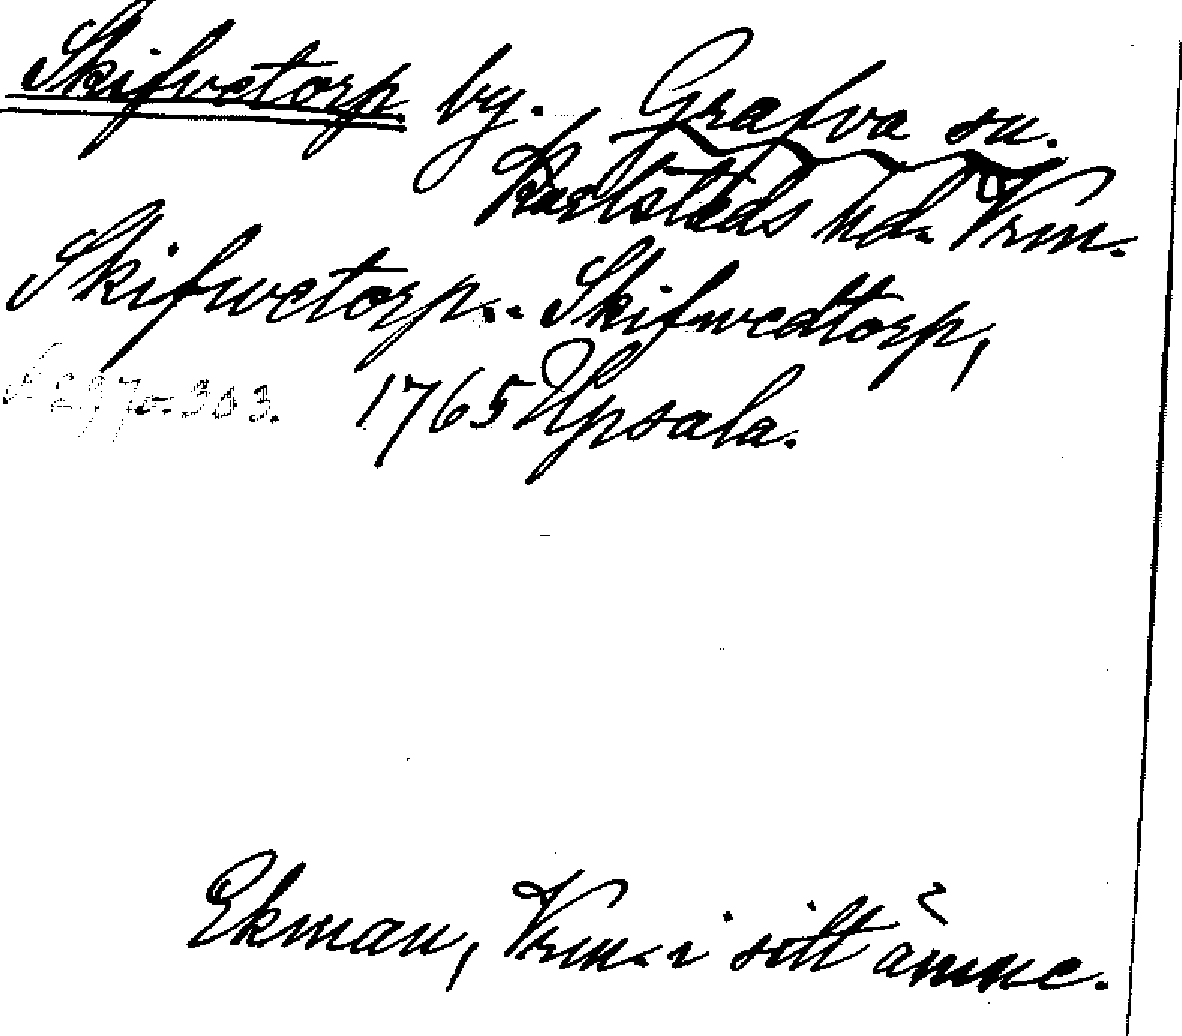 Skifvetorp by. Grafva sn.
Karlstads hd. Vrm.
Skifwetorp.. Skifwedtorp,
s 297 o. 303. 1765 Upsala.
Ekman, Vrm. i sitt ämne.